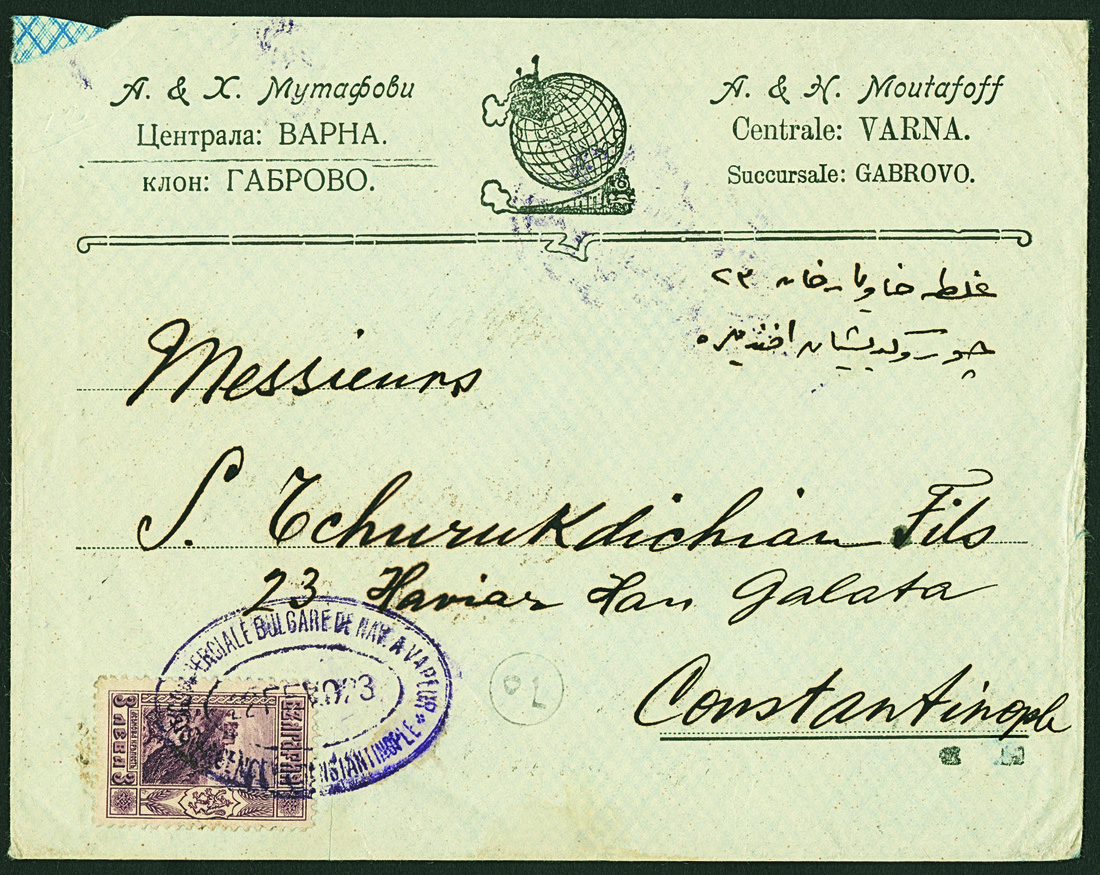 А. & Х. Мутафови
Централа: ВАРНА.
клон: ГАБРОВО.
A. & H. Moutafoff
Centrale: VARNA.
Succursale: GABROVO.
غلطه خاویار خان ٢٣
Messieurs
S. Tchurukdichian Fils
23 Haviar Han Galata
Constantinople
ERCIALE BULGARE DE NAV. A VAPEUR
CONSTANTINOPLE
БЪЛГАРИЯ
3 ЛЕВА 3